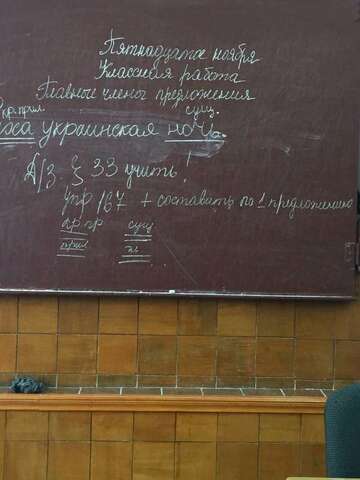 Пятнадцатое ноября
Классная работа
Главные члены предложения
кр.прил. сущ.
украинская ночь.
Д/з. § 33 учить!
Упр 167 + составить по 1 предложению
кр пр сущ
прил